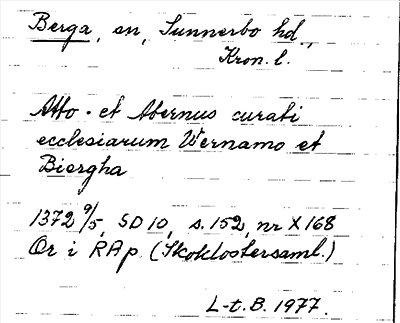 Berga, sn, Sunnerbo hd.,
Kron. l.
Atto. et Abernus curati
ecclesiarum Wernamo et
Biergha
1372 9/5, SD 10, s. 152, nr X 168
Or i RAp. (Skoklostersaml.)
L-t. B. 1977.